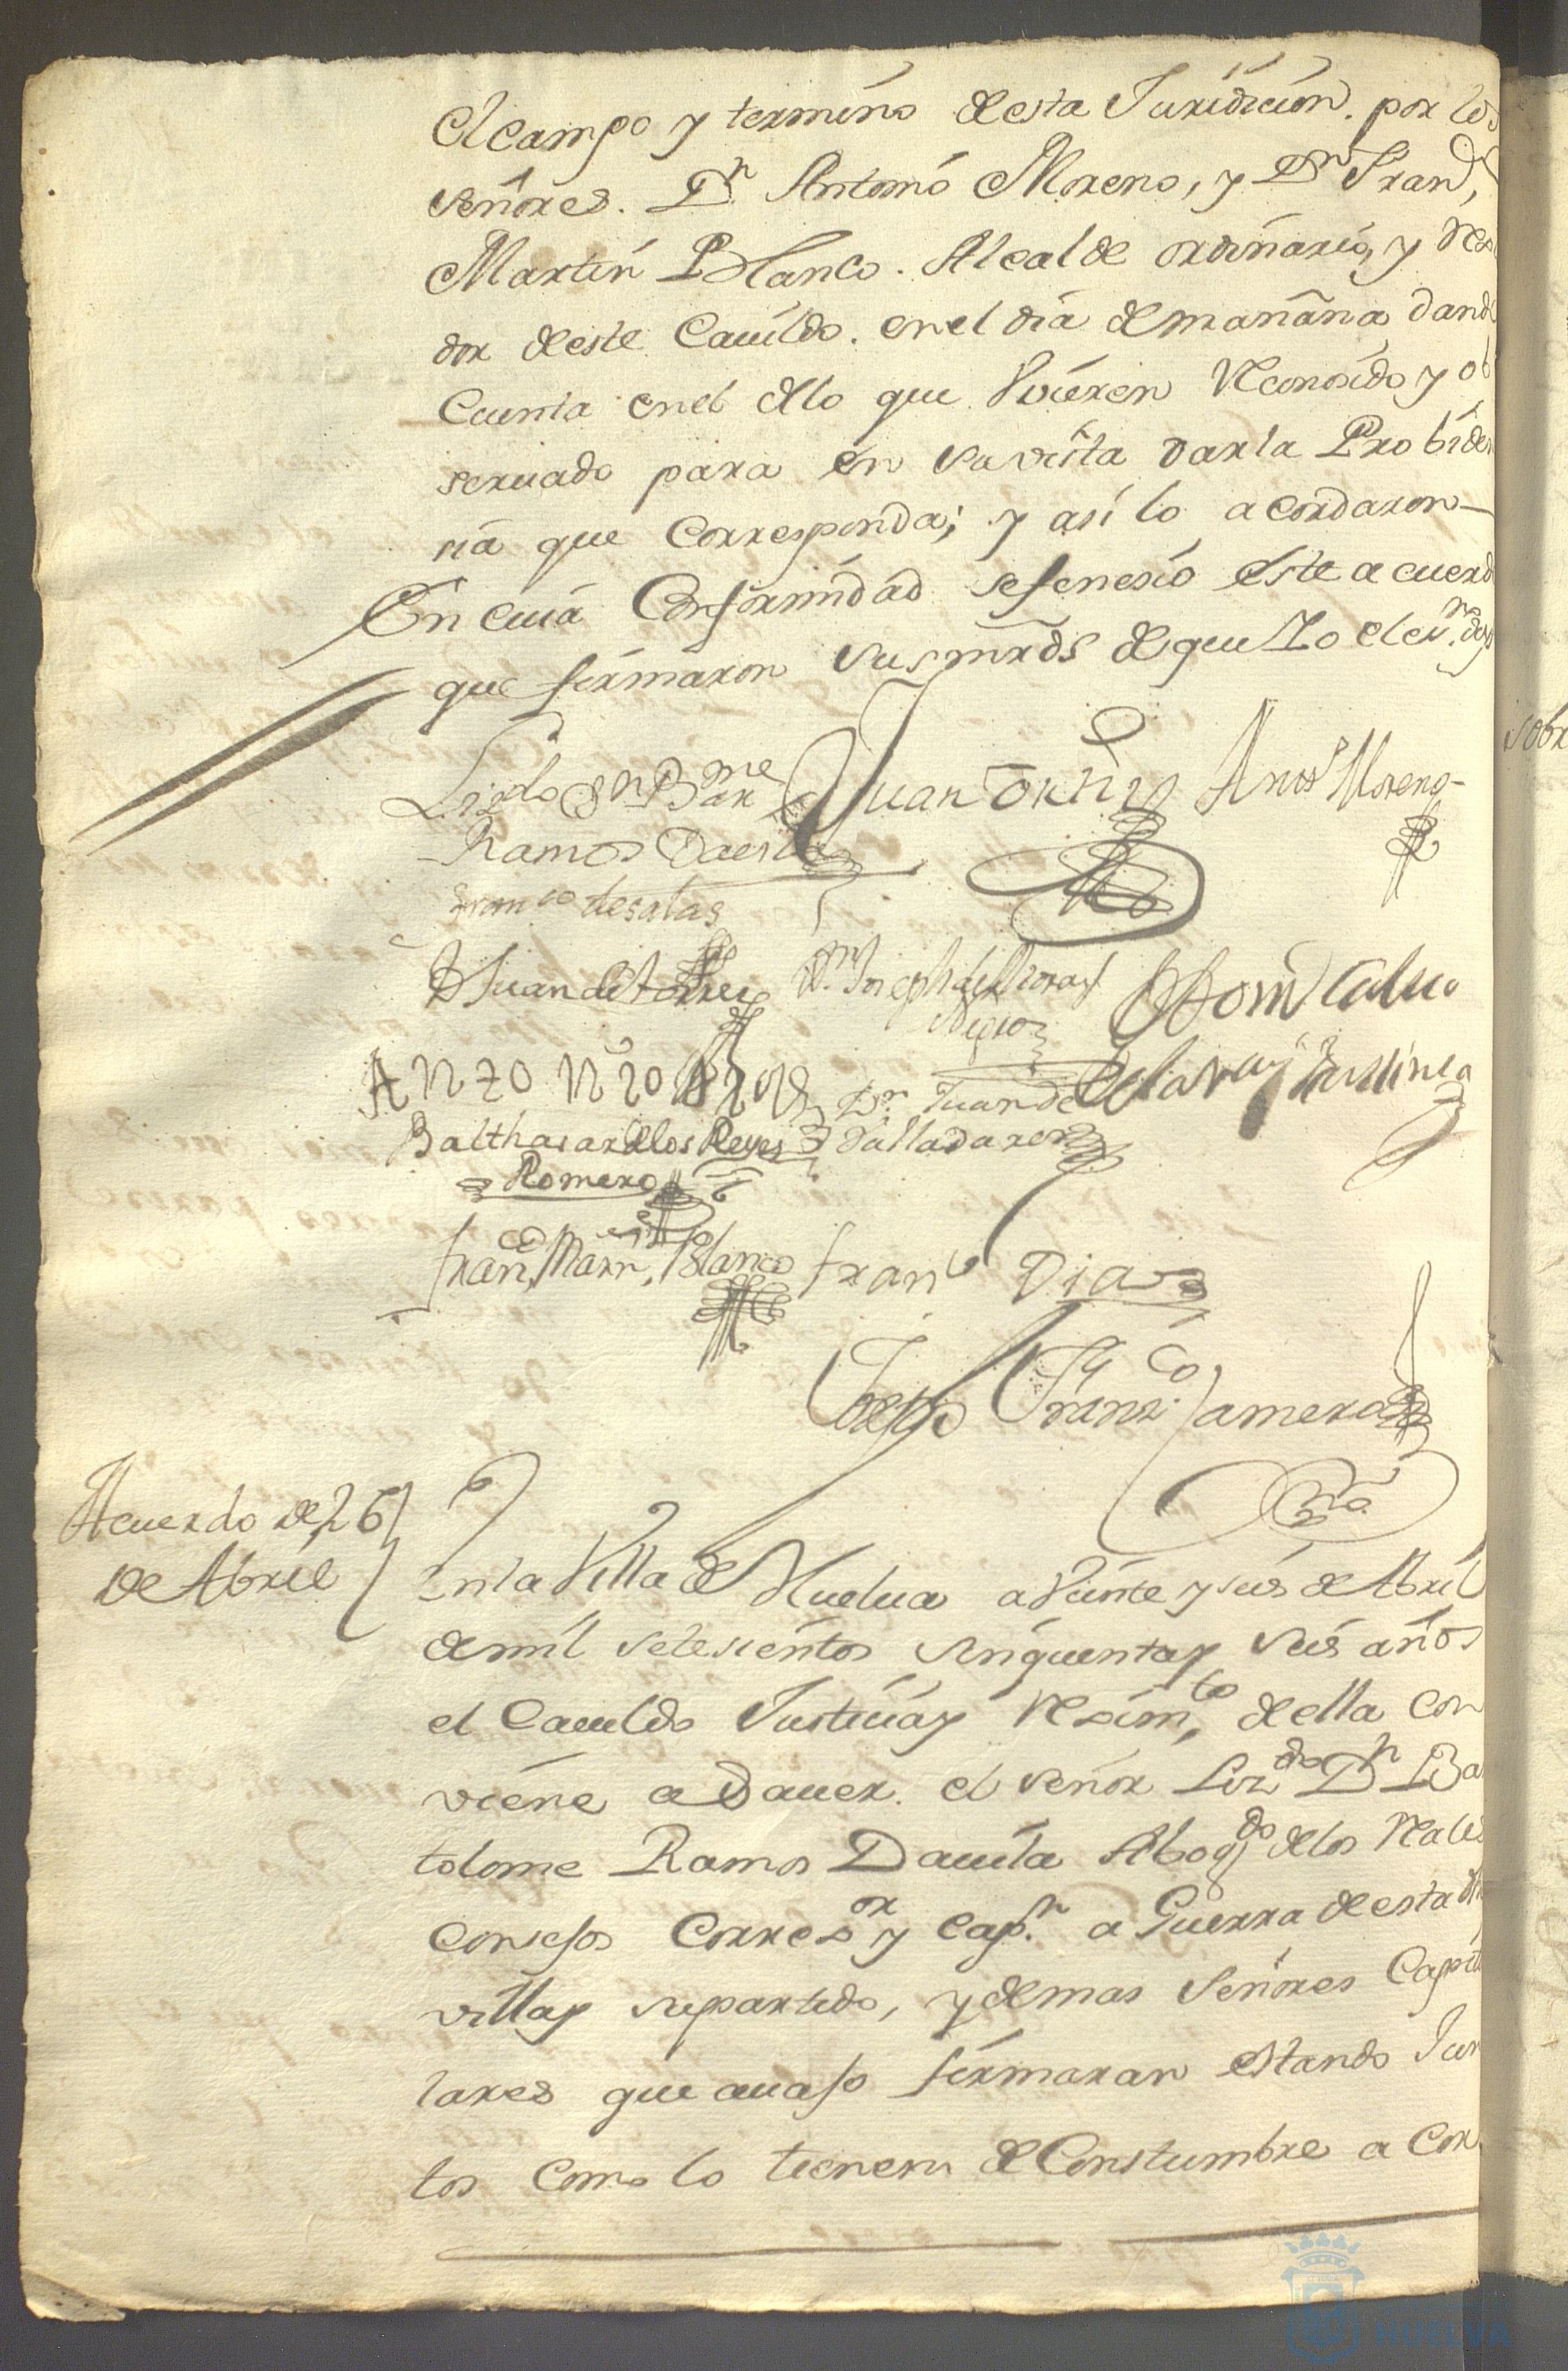 el campo y termino desta Juridicion. por los
señores. Dn Antonio Moreno, y Dn Franco,
Martin Blanco. Alcalde ordinario, y Rexi
dor deste Cauildo. en el dia de mañana dando
Cuenta en el dlo que huuieren Reconosido y ob
seruado para en su vista dar la Probiden
sia que Corresponda; y asi lo acordaron
En cuia Conformidad se fenesio este acuerdo
que firmaron sus mrds de que Yo el esno. doy
Lizdo Dn Barme Juan Ortiz Anto Moreno
Ramos Dauila
Franco de salas
Juan de torres Dn Joseph de
Antonio
Dn Juan de
Balthasar de los Reyes Valladares
Romero
Franco Marn. Blanco Franco Dias
Joseph Franzco. Camero
Acuerdo de 26
de Abril
En la Villa de Huelua a Veinte y seis de Abril
de mil setesientos sinquenta y seis años
el Cauildo Justicia y Reximto, de ella Con
viene a sauer. el señor Lizdo Dn Bar
tolome Ramos Dauila Abogdo de los Reales
Consejos Corregor y Capn. a Guerra de esta dha
villa y su partido, y demas señores Capitu
lares que auajo firmaran estando Jun
tos Como lo tienen de Constumbre a Con
sobre
HUELVA